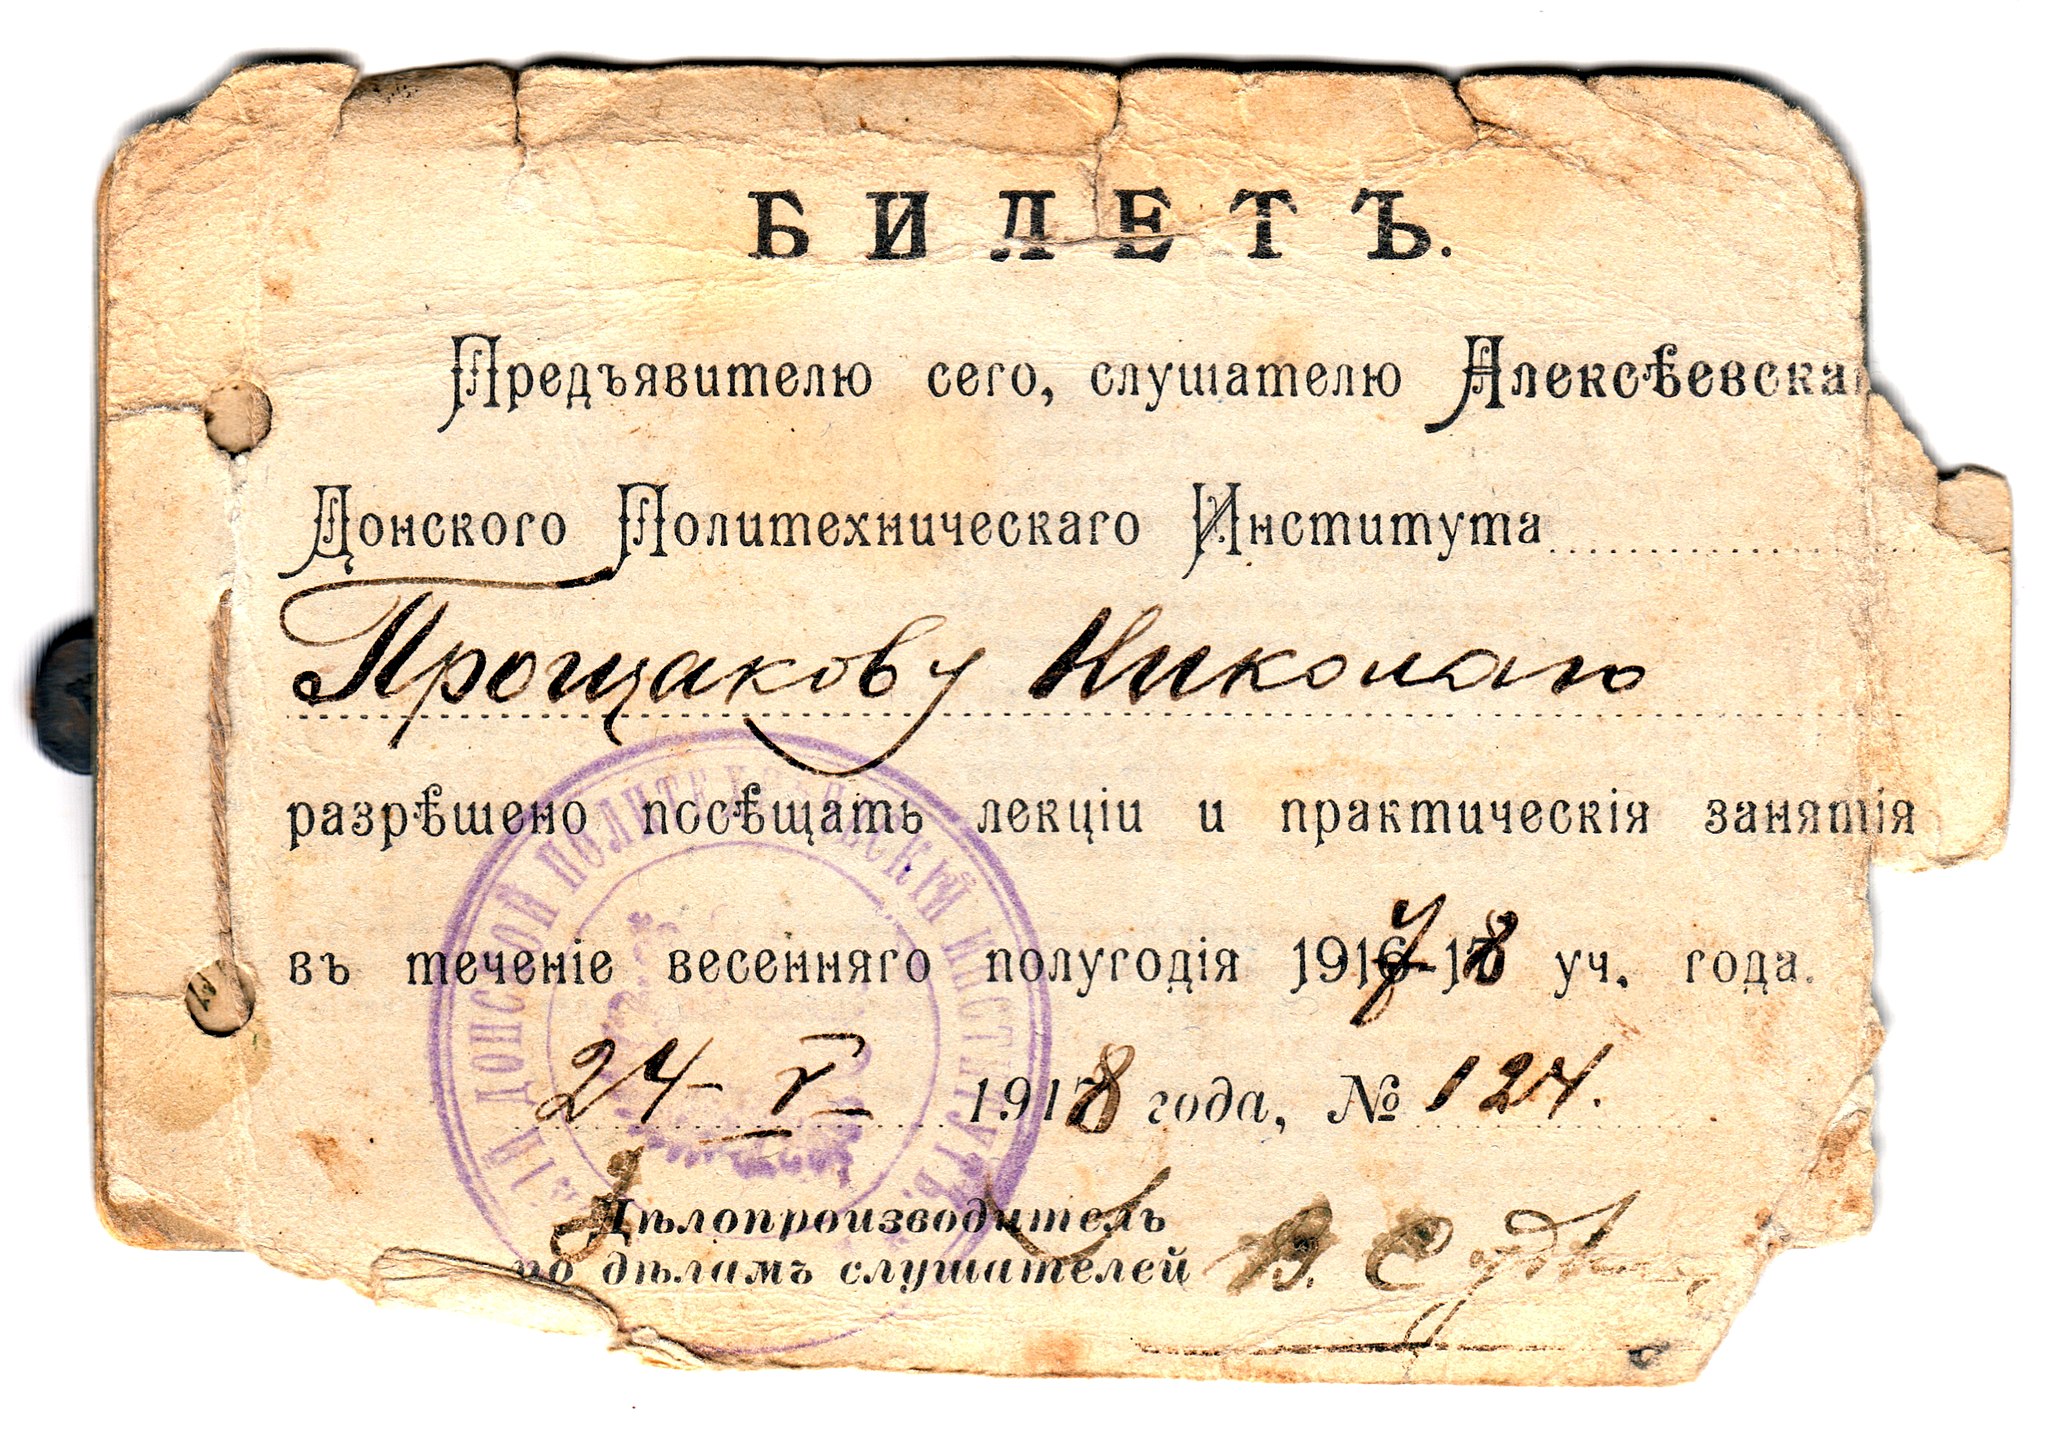 БИЛЕТЪ.
Предъявителю сего, слушателю Алексѣевска
Донского Политехническаго Института
Прощакову Николаю
разрѣшено посѣщать лекціи и практическія занятія
въ теченіе весенняго полугодія 1917-18 уч. года.
24 - V 1918 года, № 124.
Дѣлопроизводитель
по дѣламъ слушателей
ДОНСКОЙ ПОЛИТЕХНИЧЕСКІЙ ИНСТИТУТЪ